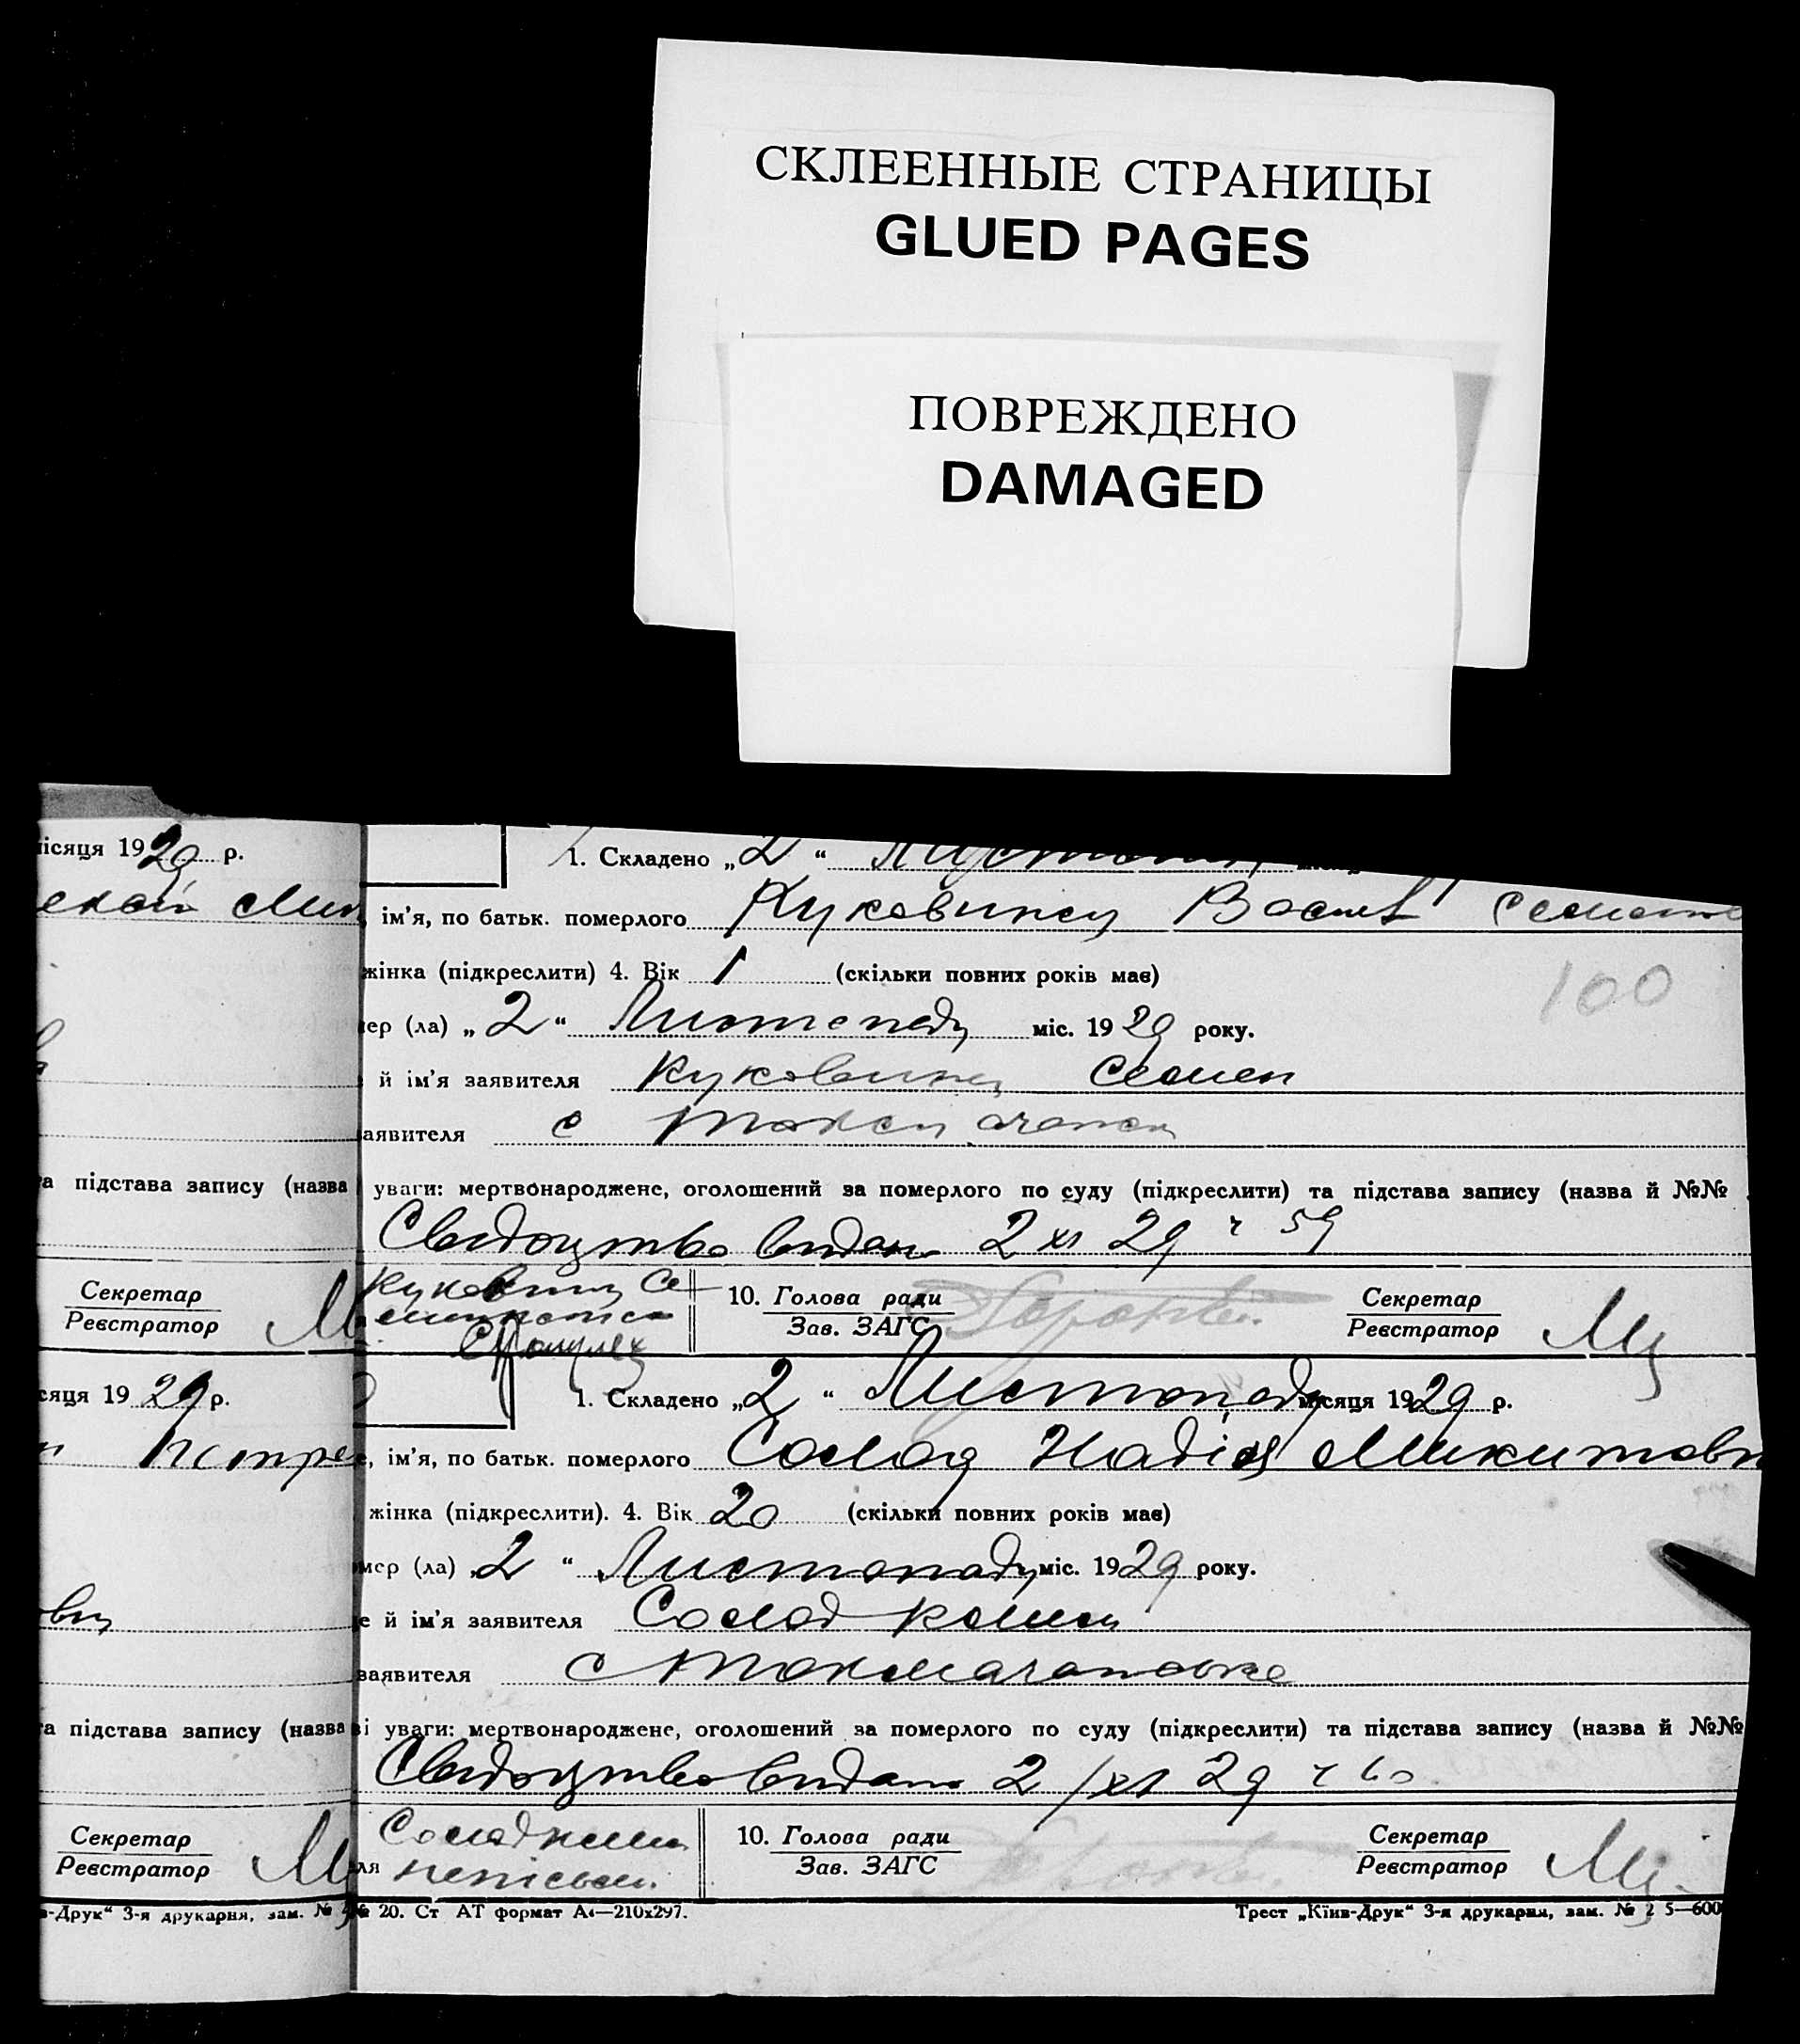 СКЛЕЕННЫЕ СТРАНИЦЫ
GLUED PAGES
ПОВРЕЖДЕНО
DAMAGED
ісяця 1929 р.
1. Складено „2“
ім'я, по батьк. померлого Куковинец Васил
жінка (підкреслити) 4. Вік 1 (скільки повних років має)
100
ер (ла) „2“ Листопаду міс. 1929 року.
й ім'я заявителя Куковинец Семен
аявителя с
а підстава запису (назва
уваги: мертвонароджене, оголошений за померлого по суду (підкреслити) та підстава запису (назва й №№
Свидоцтво видано 2 XI 29 ч 59
Секретар
Реєстратор
10. Голова ради
Зав. ЗАГС
Секретар
Реєстратор
сяця 1929 р.
1. Складено „2“ Листопаду місяця 1929 р.
е, ім'я, по батьк. померлого Солод Надія Микитовн
жінка (підкреслити). 4. Вік 20 (скільки повних років має)
мер (ла) 2“ Листопаду міс. 1929 року.
е й ім'я заявителя Солод Клим
заявителя с
а підстава запису (назва
і уваги: мертвонароджене, оголошений за померлого по суду (підкреслити) та підстава запису (назва й №№
Свидоцтво видано 2/XI 29 ч 60
Секретар
Реєстратор
Солод Клим
ля непісьм.
10. Голова ради
Зав. ЗАГС
Секретар
Реєстратор
-Друк“ 3-я друкарня, зам. №
№ 20. Ст АТ формат А4—210х297.
Трест „Київ-Друк“ 3-я друкарня, зам. № 2 5—600